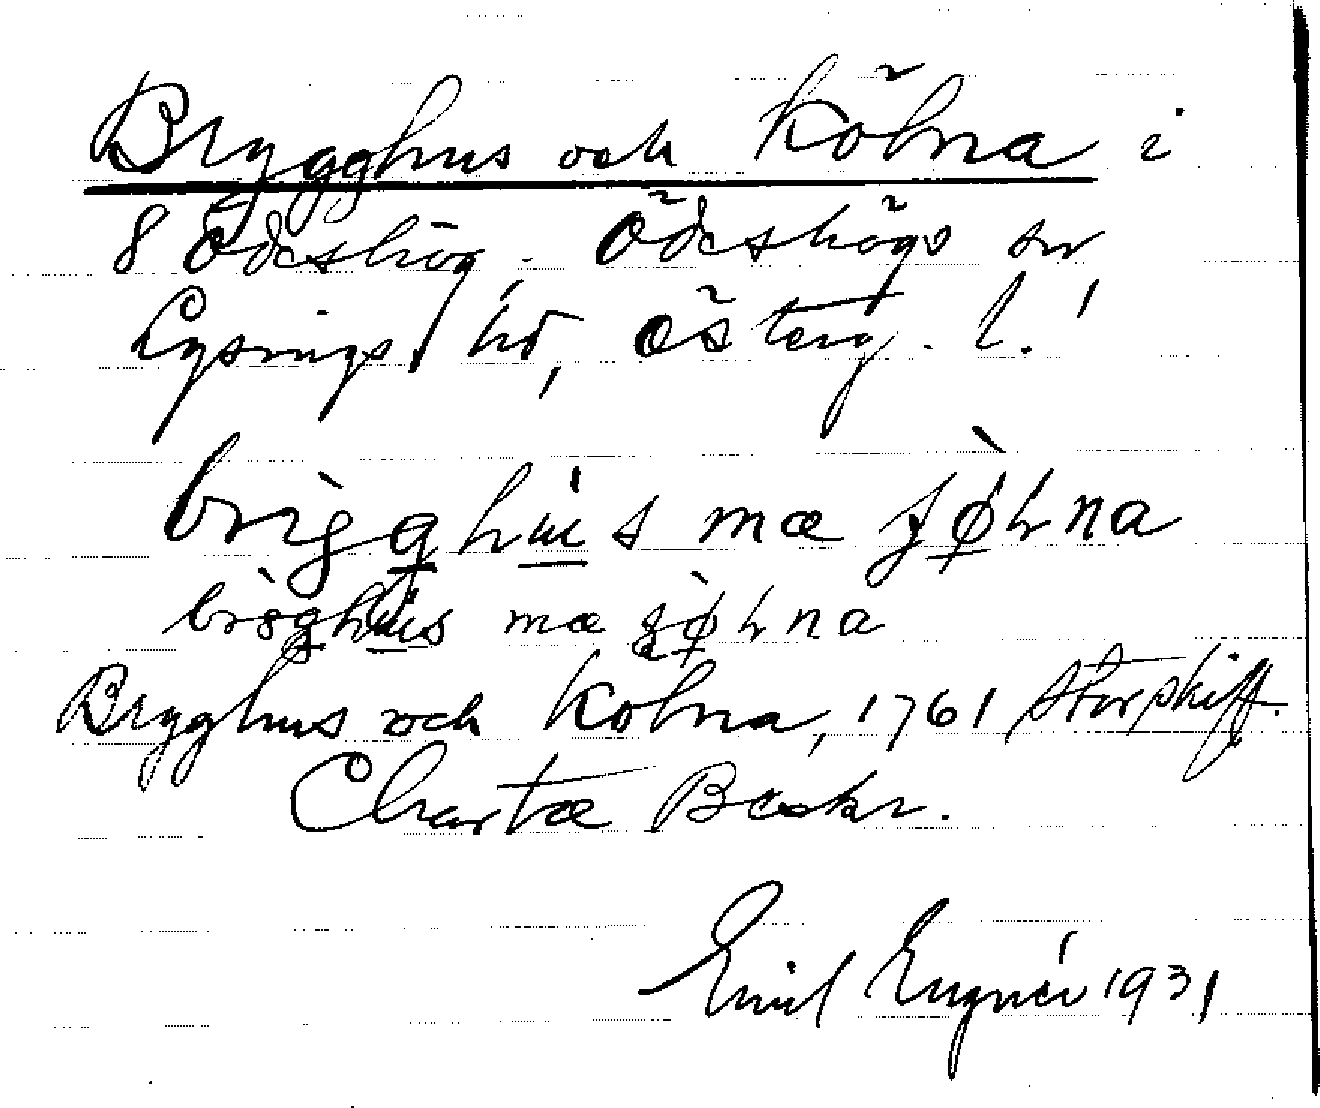 Brygghus och Kölna i
8 Ödeshög, Ödeshögs sn
Lysings hd, Österg. l.
brìgghu̍s mæ ʃø̀ɫna
bròghus mæ ʃø̀ɫna
Brygghus och Kolna, 1761 Storskift.
Charta Beskr.
Emil Eugnér 1931